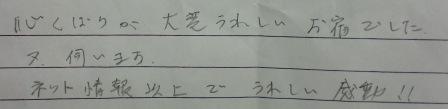 心くばりが大変うれしいお宿でした
又、伺います
ネット情報以上でうれしい感動!!